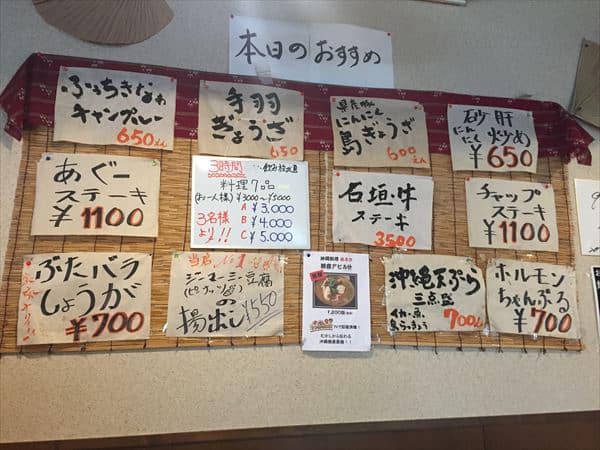 本日のおすすめ
ふーちきなぁ
チャンプルー
650えん
手羽
ぎょうざ
650
県産豚
にんにく
島ぎょうざ
600えん
砂肝
にんにく炒め
¥650
あぐー
ステーキ
¥1100
3時間
飲み放題
料理7品
(お一人様) ¥3000〜¥5000
3名様
より!!
A ¥3,000
B ¥4,000
C ¥5,000
石垣牛
ステーキ
3500
チャップ
ステーキ
¥1100
ぶたバラ
しょうが
¥700
当店
ジーマーミー豆腐
(ピーナッツ)
の
揚出し
¥550
沖縄料理
1,200円
TVで話題沸騰!
むかしから伝わる
沖縄精進薬膳!!
沖縄天ぷら
三点盛
イカ、魚、
島らっきょう
700
ホルモン
ちゃんぷる
¥700